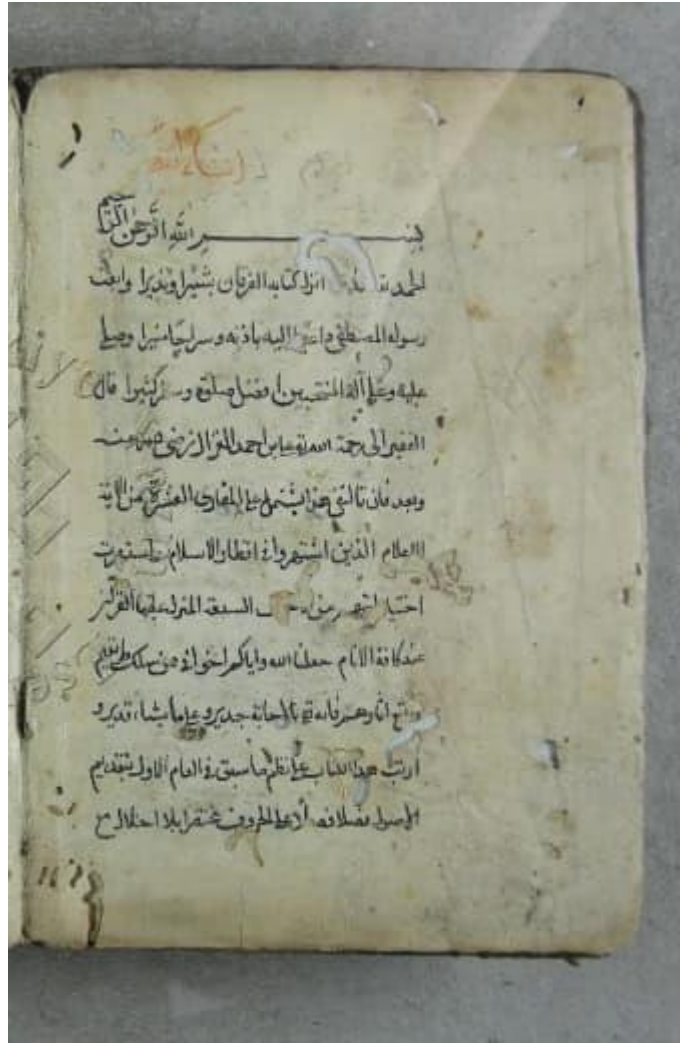 بسم الله الرحمن الرحيم
الحمد لله انزل كتابه الفرقان بشيرا ونذيرا وابعث
رسوله المصطفى داعيا اليه باذنه وسراجا منيرا وصلى
عليه وعلى آله المنتجبين افضل صلوة وسلم كثيرا قال
الفقير الى رحمة الله على بن احمد الغزال رضى عنه
وبعد فان تاليفى هذا اشتمل على المقارى العشرة من الائمة
الاعلام الذين اشتهروا فى اقطار الاسلام واستمرت
اختيار السبعة المنزل عليها القرآن
عند كافة الانام جعلنا الله واياكم اخوانى ممن سلك طريقهم
واتبع اثارهم فانه بالاجابة جدير وعلى ما يشاء قدير و
ارتب هذا الكتاب على نظم ما سبق فى العام الاول بتقديم
الاصول على الحروف مختصرا بلا اخلال مع